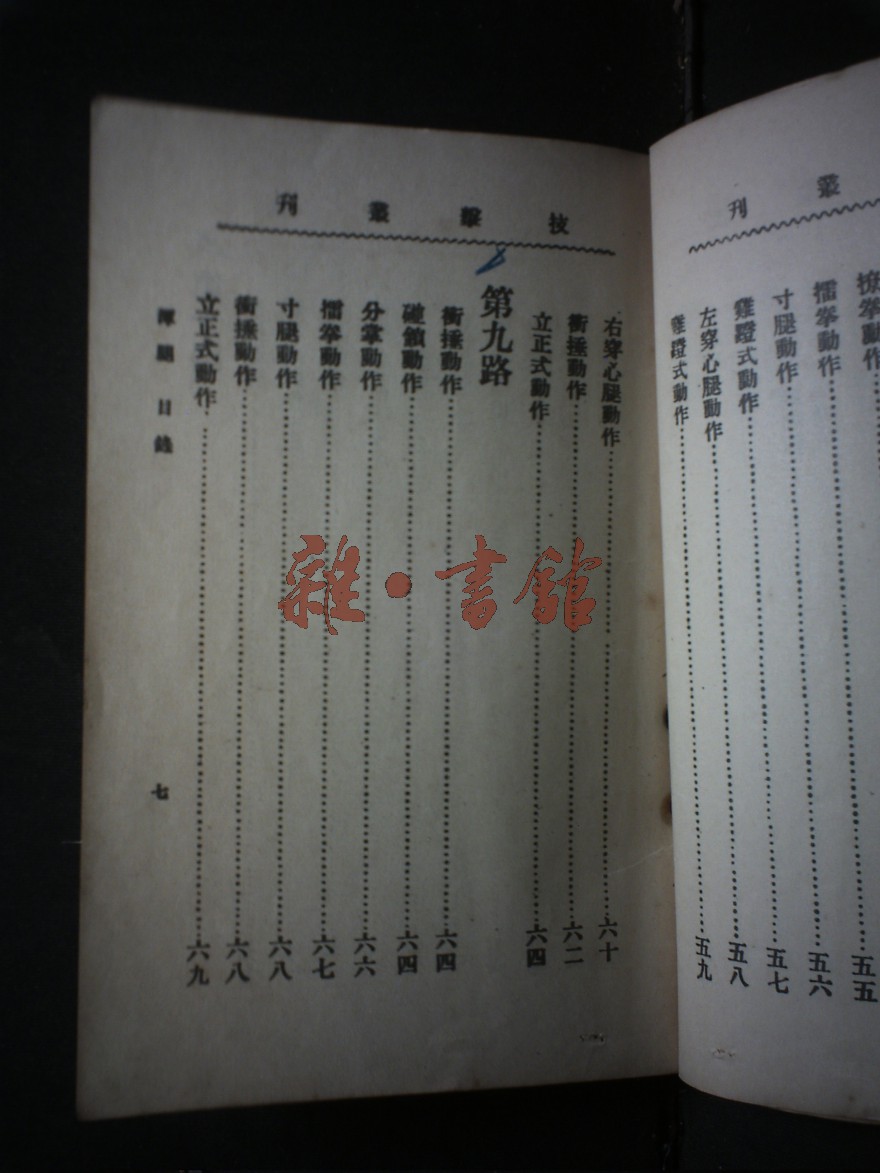 叢刊
撩拳動作
擂拳動作……五五
寸腿動作……五六
雞蹬式動作……五七
左穿心腿動作……五八
雞蹬式動作……五九
技擊叢刊
右穿心腿動作……六十
衝捶動作……六二
立正式動作……六四
第九路
衝捶動作……六四
動作……六四
分掌動作……六六
擂拳動作……六七
寸腿動作……六八
衝捶動作……六八
立正式動作……六九
目錄
七
雜·書館